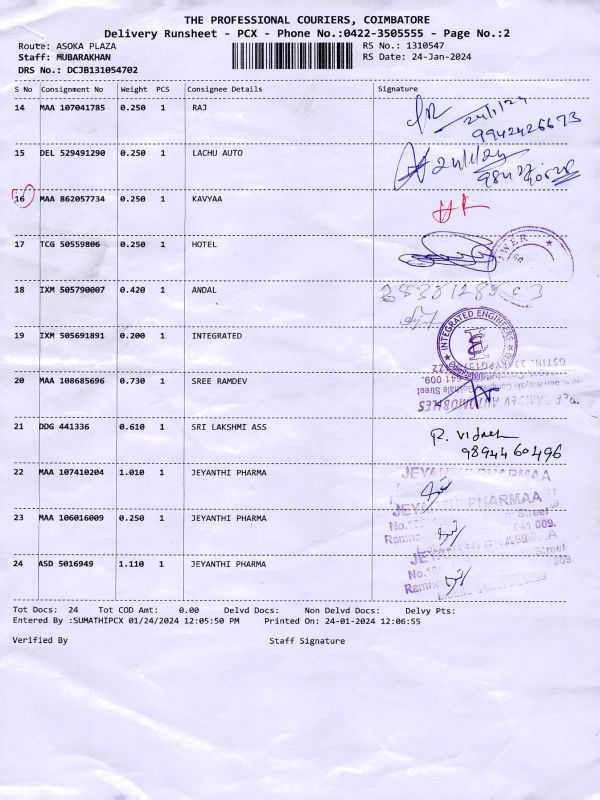 THE PROFESSIONAL COURIERS, COIMBATORE
Delivery Runsheet - PCX - Phone No.:0422-3505555 - Page No.:2
Route: ASOKA PLAZA RS No.: 1310547
Staff: MUBARAKHAN RS Date: 24-Jan-2024
DRS No.: DCJB131054702
S No Consignment No Weight PCS Consignee Details Signature
14 MAA 107041785 0.250 1 RAJ 24/1/24
9942426673
15 DEL 529491290 0.250 1 LACHU AUTO 24/1/24
16 MAA 862057734 0.250 1 KAVYAA
17 TCG 50559806 0.250 1 HOTEL
18 IXM 505790007 0.420 1 ANDAL
19 IXM 505691891 0.200 1 INTEGRATED INTEGRATED ENGINEERS
20 MAA 108685696 0.730 1 SREE RAMDEV
21 DDG 441336 0.610 1 SRI LAKSHMI ASS R. Vidhesh
9894460496
22 MAA 107410204 1.010 1 JEYANTHI PHARMA JEYANTHI PHARMAA
23 MAA 106016009 0.250 1 JEYANTHI PHARMA JEYANTHI PHARMAA
24 ASD 5016949 1.110 1 JEYANTHI PHARMA
Tot Docs: 24 Tot COD Amt: 0.00 Delvd Docs: Non Delvd Docs: Delvy Pts:
Entered By :SUMATHIPCX 01/24/2024 12:05:50 PM Printed On: 24-01-2024 12:06:55
Verified By Staff Signature